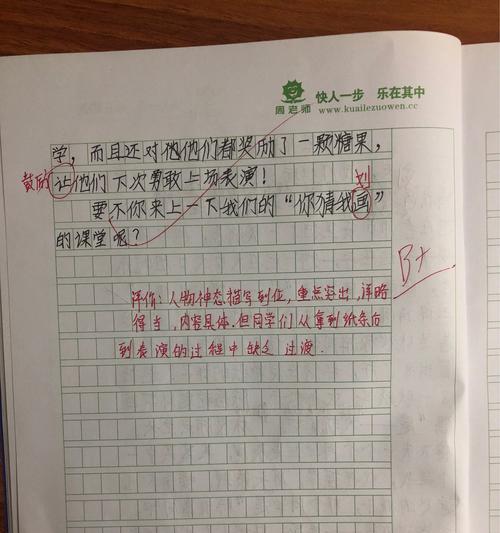 周老师 快人一步 乐在其中
www.kuailezuowen.cc
学，而且还对他他们都奖励了一颗糖果，
鼓励 让他们下次勇敢上场表演！
划
要不你来上一下我们的“你猜我画”
的课堂呢？
B+
评价：人物神态描写到位，重点突出，详略
得当，内容具体.但同学们从拿到纸条后
到表演的过程中缺乏过渡.